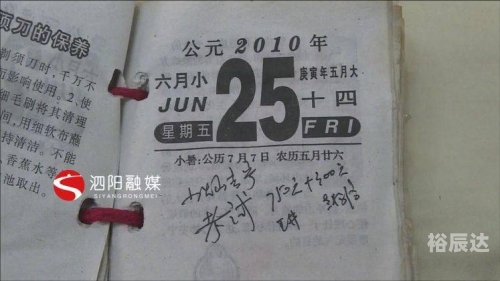 须刀的保养
剃须刀时，千万不
而影响使用。2、使
细毛刷将其清理
间，用细软布蘸
持清洁。不能
香蕉水等
池取出。
公元 2010 年
六月小
JUN
星期五
25
庚寅年五月大
十四
FRI
小暑:公历7月7日 农历五月廿六
考试
750元+300元
泗阳融媒
SIYANGRONGMEI
裕辰达